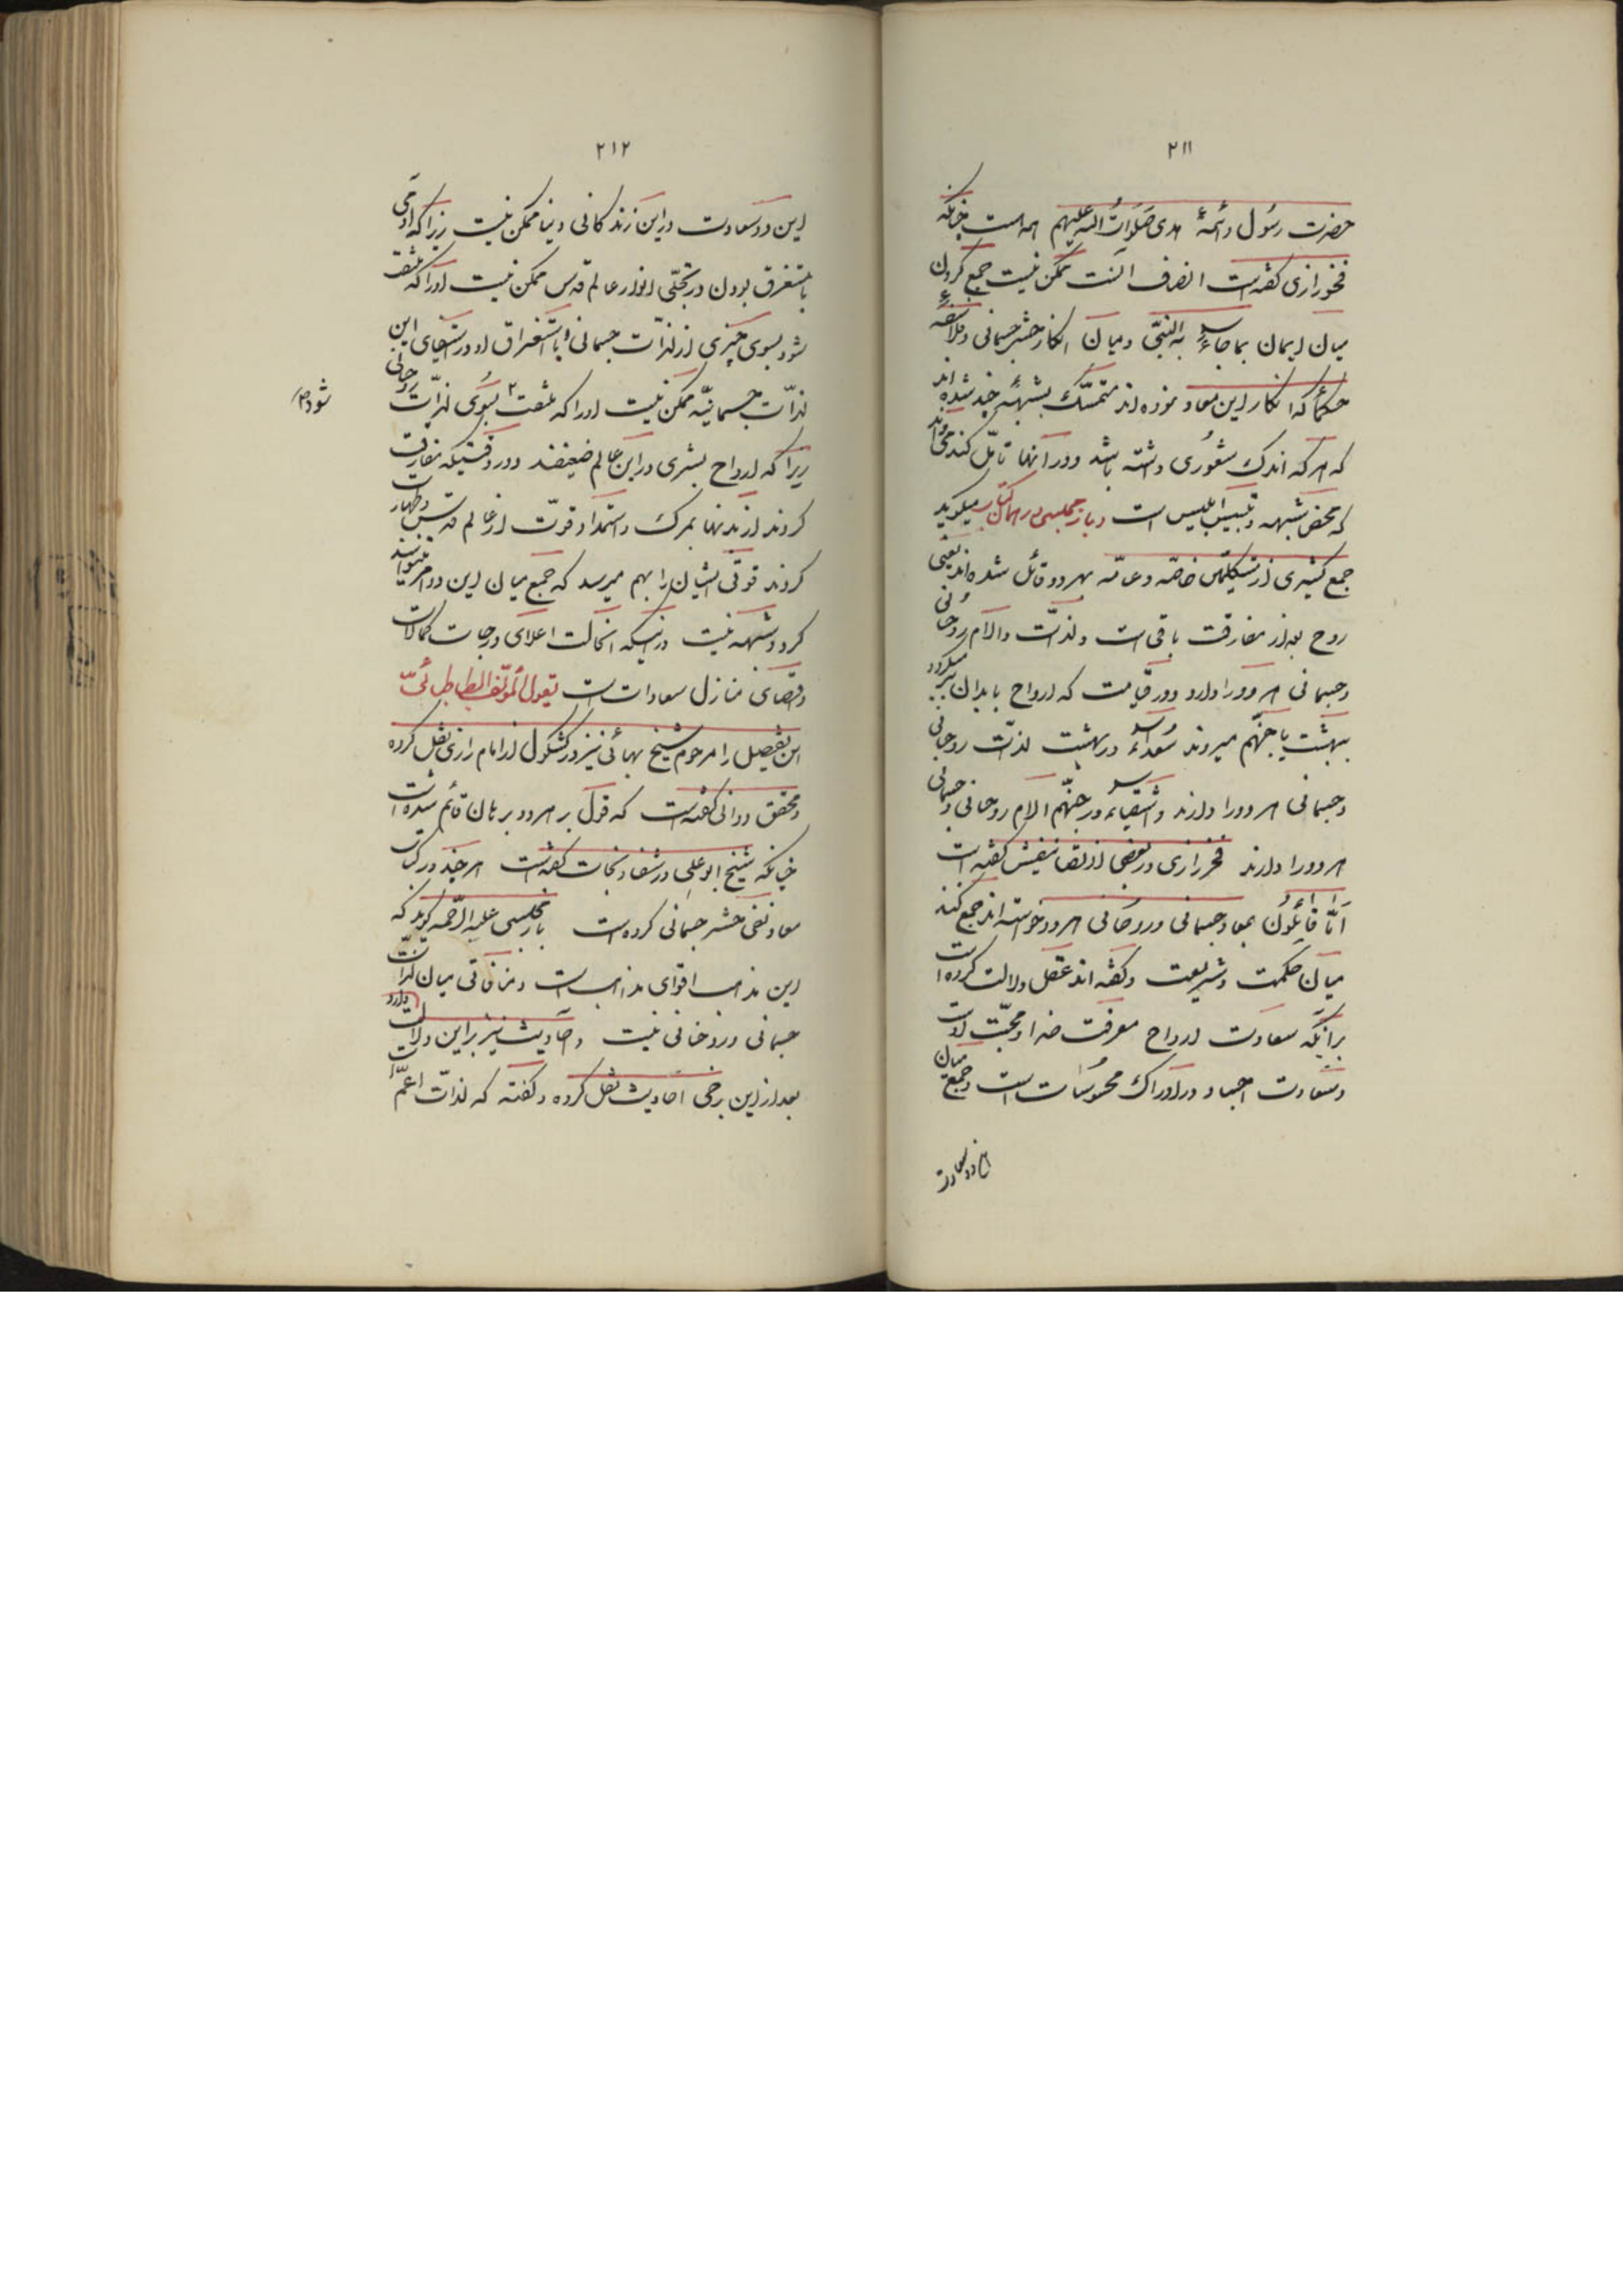 ۲۱۱
حضرت رسول و ائمهٔ هدی صلوات الله علیهم همه است چنانکه
فخر رازی گفته است انصاف آنست که ممکن نیست جمع کردن
میان ایمان بما جاء به النبی و میان انکار حشر جسمانی و فلاسفه
حکماء که انکار این معاد نموده اند متمسک بشبههٔ چند شده اند
که هر که اندک شعوری داشته باشد و در آنها تأمل کند میداند
که محض شبهه و تلبیس ابلیس است و باز مجلسی در همان کتاب میگوید
جمع کثیری از متکلمین خاصه و عامه بهر دو قائل شده اند یعنی
روح بعد از مفارقت باقی است و لذت و آلام روحانی
و جسمانی هر دو را دارد و در قیامت که ارواح بابدان برمیگردد
ببهشت یا جهنم میروند سعداء در بهشت لذت روحانی
و جسمانی هر دو را دارند و اشقیاء در جهنم الام روحانی و جسمانی
هر دو را دارند فخر رازی در بعضی از تصانیفش گفته است
اما قائلون بمعاد جسمانی و روحانی هر دو خواسته اند جمع کنند
میان حکمت و شریعت و گفته اند عقل دلالت کرده است
بر آنکه سعادت ارواح معرفت خدا و محبت اوست
و سعادت اجساد در ادراک محسوسات است و جمع میان
این دو سعادت
۲۱۲
این دو سعادت در این زندگانی دنیا ممکن نیست زیرا که آدمی
با مستغرق بودن در تجلی انوار عالم قدس ممکن نیست او را که ملتفت
شود بسوی چیزی از لذات جسمانی و با استغراق او در استیفای این
لذات جسمانیه ممکن نیست او را که ملتفت بسوی لذات روحانی
شود
زیرا که ارواح بشری در این عالم ضعیفند و در وقتیکه مفارقت
کردند از بدنها بمرگ و استمداد قوت از عالم قدس و طهارت
کردند قوتی ایشان را بهم میرسد که جمع میان این دو امر میتوانند
کرد و شبهه نیست در اینکه انحالت اعلای درجات کمالات
و اقصای منازل سعادات است یقول المؤلف الطباطبائی
این تفصیل را مرحوم شیخ بهائی نیز در کشکول از امام رازی نقل کرده
و محقق دوانی گفته است که قول بر هر دو برهان قائم شده است
چنانکه شیخ ابوعلی در شفا و نجات گفته است هر چند در کتاب
معاد نفی حشر جسمانی کرده است باز مجلسی علیه الرحمه گوید که
این مذهب اقوای مذاهب است و منافاتی میان لذات
جسمانی و روحانی نیست و احادیث نیز بر این دلالت دارد
بعد از این برخی احادیث نقل کرده و گفته که لذات اعم است